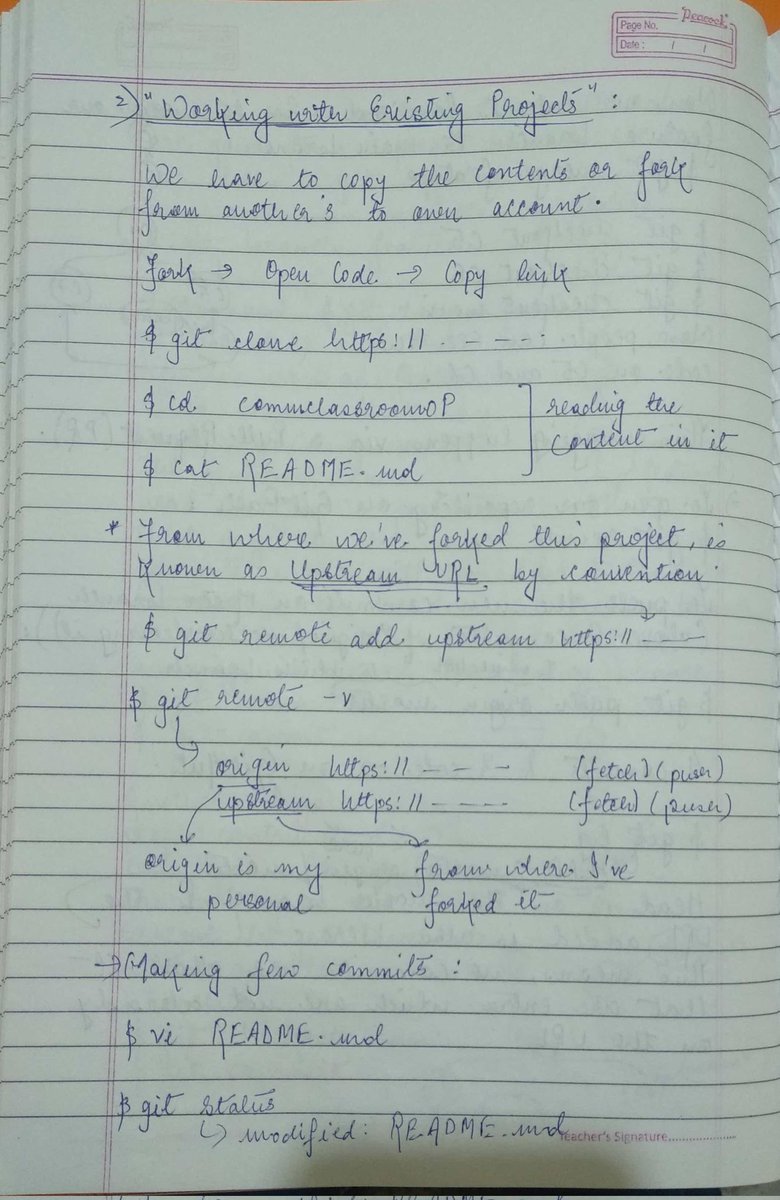 Peacock
Page No.
Date : / /
2) "Working with Existing Projects" :
We have to copy the contents or fork
from another's to own account.
Fork → Open Code → Copy link
$ git clone https://. - - - - .
$ cd commclassroomOP
$ cat README.md
reading the
content in it
* From where we've forked this project, is
known as Upstream URL by convention.
$ git remote add upstream https:// - - -
$ git remote -v
origin https:// - - - (fetch) (push)
upstream https:// - - - - (fetch) (push)
origin is my
personal
from where I've
forked it
→ Making few commits :
$ vi README.md
$ git status
↳ modified: README.md
Teacher's Signature..................